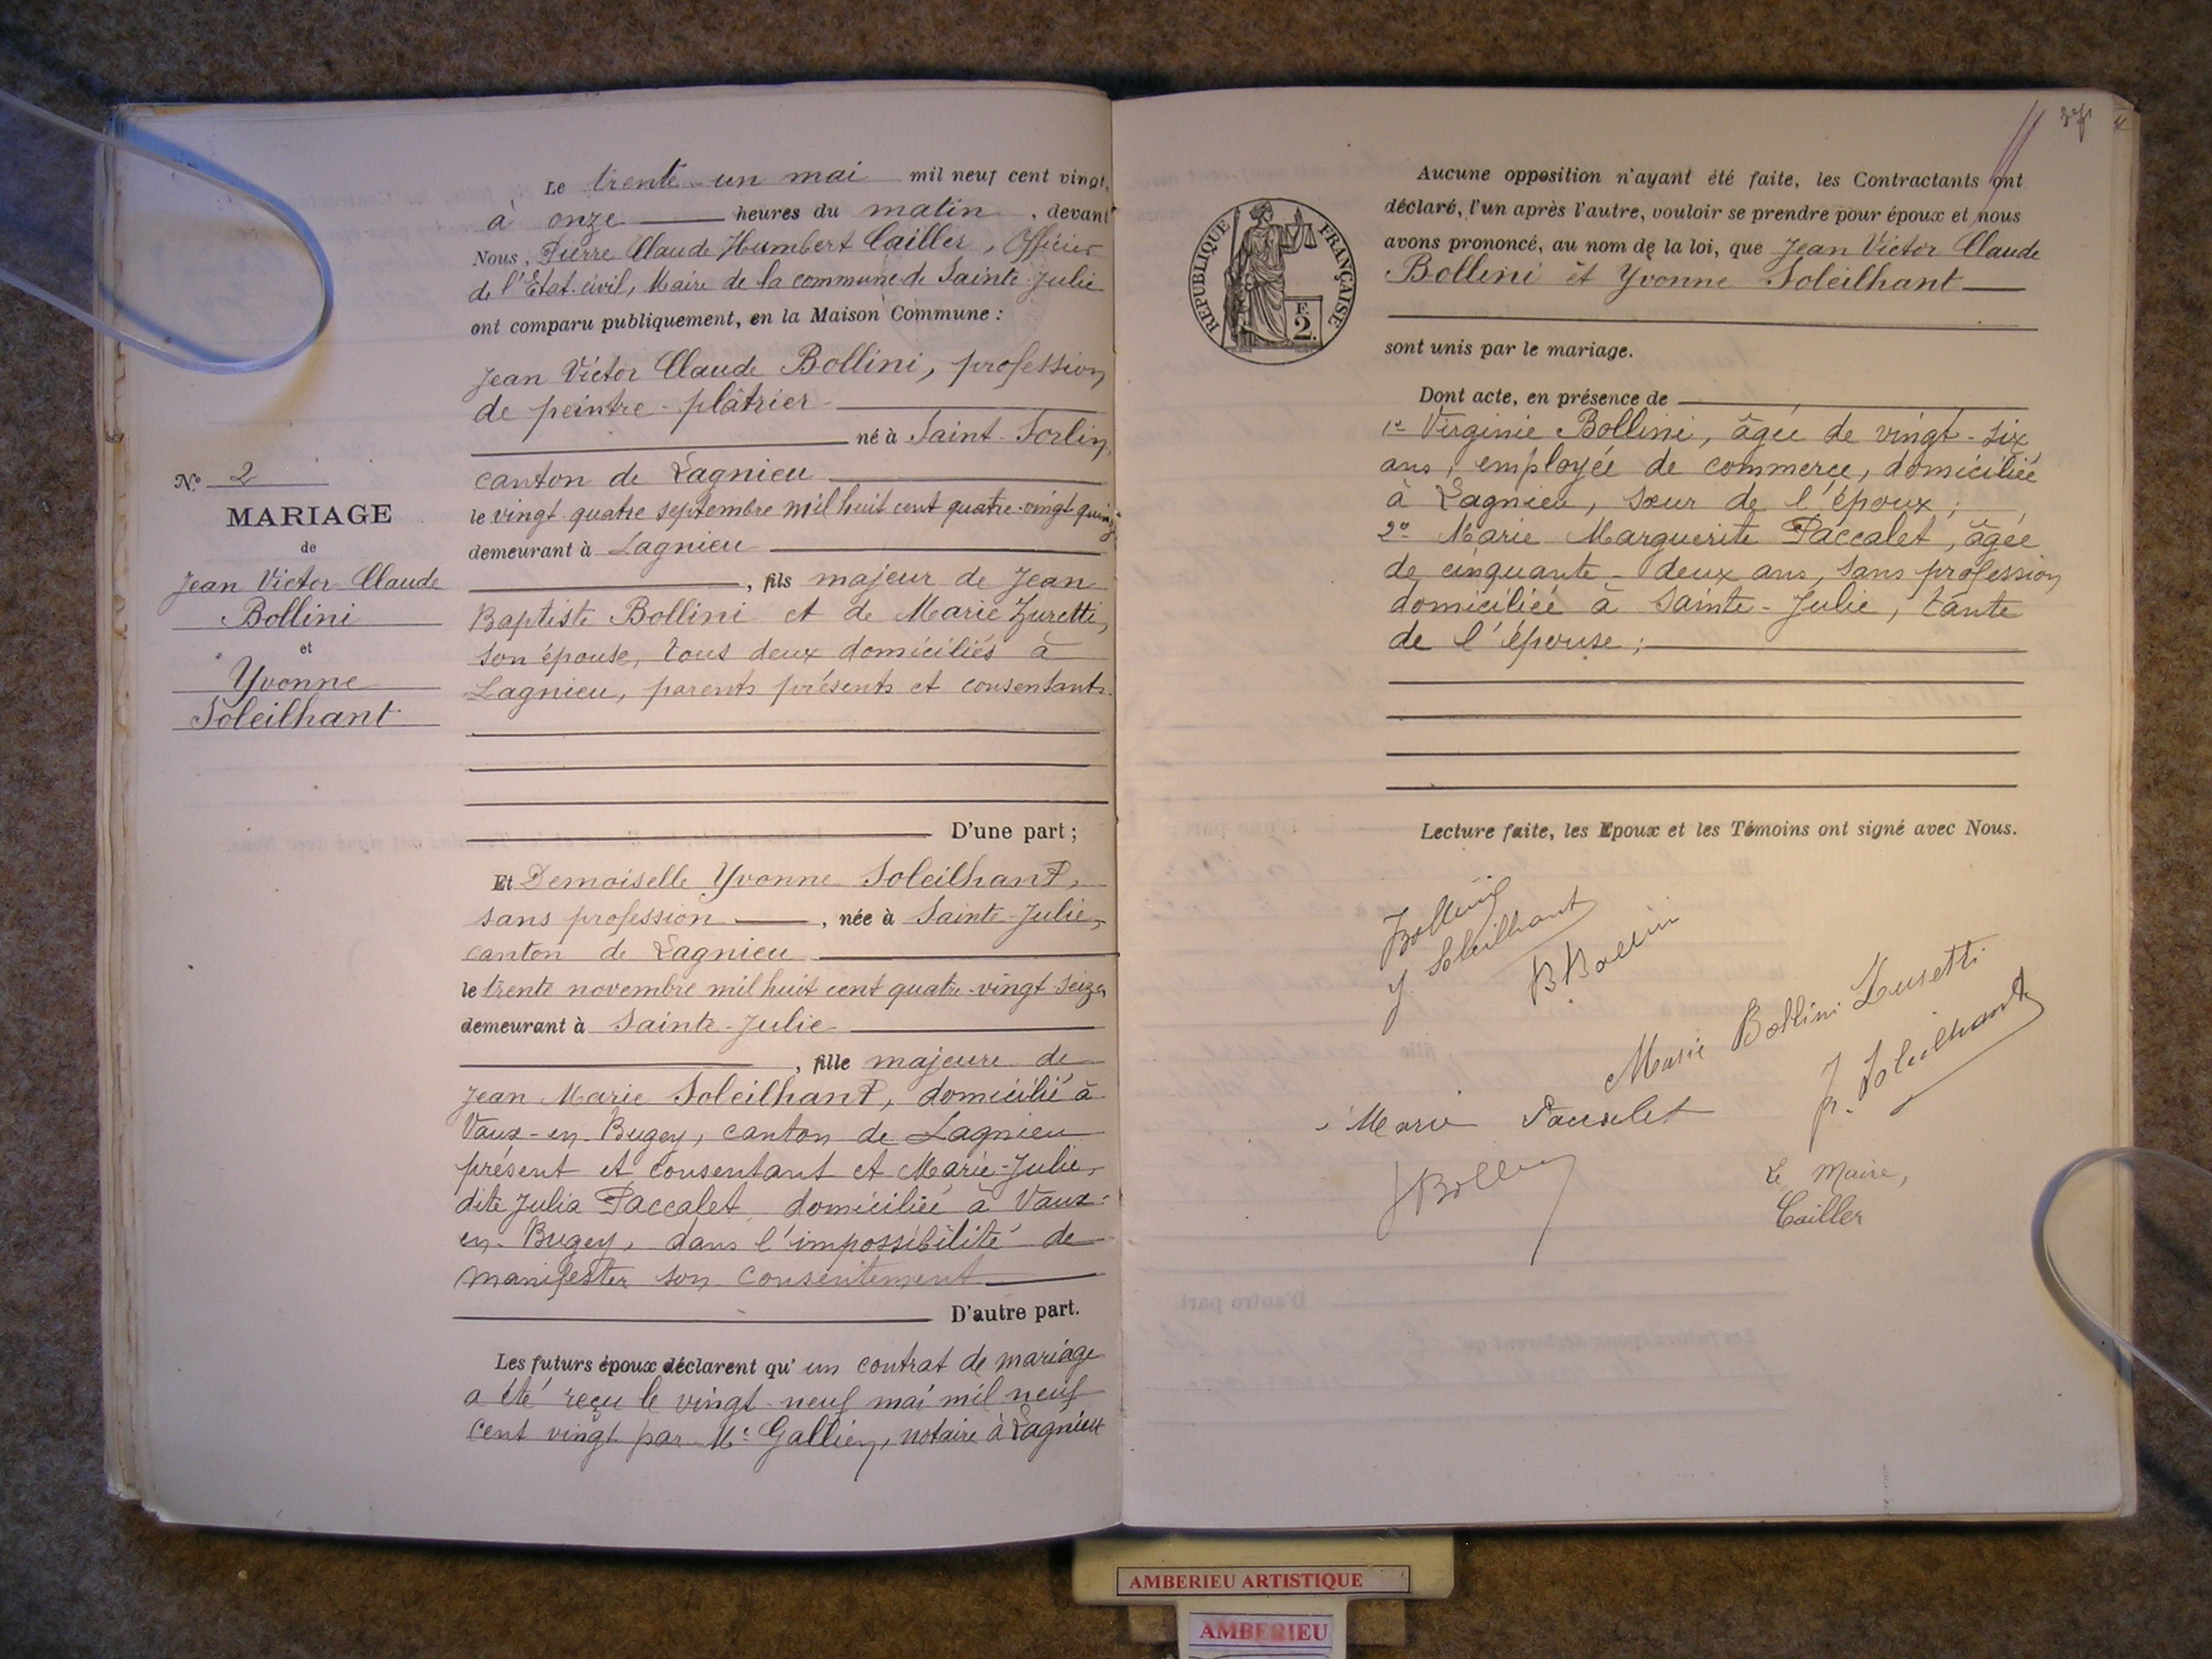 N.º 2
MARIAGE
de
Jean Victor Claude
Bollini
et
Yvonne
Soleilhant
Le trente-un mai mil neuf cent vingt,
à onze heures du matin, devant
Nous, Pierre Claude Humbert Cailler, Officier
de l'Etat-civil, Maire de la commune de Sainte-Julie
ont comparu publiquement, en la Maison Commune :
Jean Victor Claude Bollini, profession
de peintre-plâtrier
né à Saint-Sorlin,
canton de Lagnieu
le vingt-quatre septembre mil huit cent quatre-vingt-quinze
demeurant à Lagnieu
, fils majeur de Jean
Baptiste Bollini et de Marie Zuretti,
son épouse, tous deux domiciliés à
Lagnieu, parents présents et consentants.
D'une part ;
Et Demoiselle Yvonne Soleilhant,
sans profession, née à Sainte-Julie,
canton de Lagnieu
le trente novembre mil huit cent quatre-vingt-seize,
demeurant à Sainte-Julie
, fille majeure de
Jean Marie Soleilhant, domicilié à
Vaux-en-Bugey, canton de Lagnieu
présent et consentant et Marie-Julie,
dite Julia Paccalet, domiciliée à Vaux-
en-Bugey, dans l'impossibilité de
manifester son consentement
D'autre part.
Les futurs époux déclarent qu'un contrat de mariage
a été reçu le vingt-neuf mai mil neuf
cent vingt par Me Gallien, notaire à Lagnieu
Aucune opposition n'ayant été faite, les Contractants ont
déclaré, l'un après l'autre, vouloir se prendre pour époux et nous
avons prononcé, au nom de la loi, que Jean Victor Claude
Bollini et Yvonne Soleilhant
sont unis par le mariage.
REPUBLIQUE FRANÇAISE
F.
2.
Dont acte, en présence de
1º Virginie Bollini, âgée de vingt-six
ans, employée de commerce, domiciliée
à Lagnieu, sœur de l'époux ;
2º Marie Marguerite Paccalet, âgée
de cinquante-deux ans, sans profession,
domiciliée à Sainte-Julie, tante
de l'épouse ;
Lecture faite, les Epoux et les Témoins ont signé avec Nous.
Bollini
Y. Soleilhant
B Bollini
Marie Bollini Zuretti
Soleilhant
Marie Paccalet
Le Maire,
Cailler
AMBERIEU ARTISTIQUE
AMBERIEU